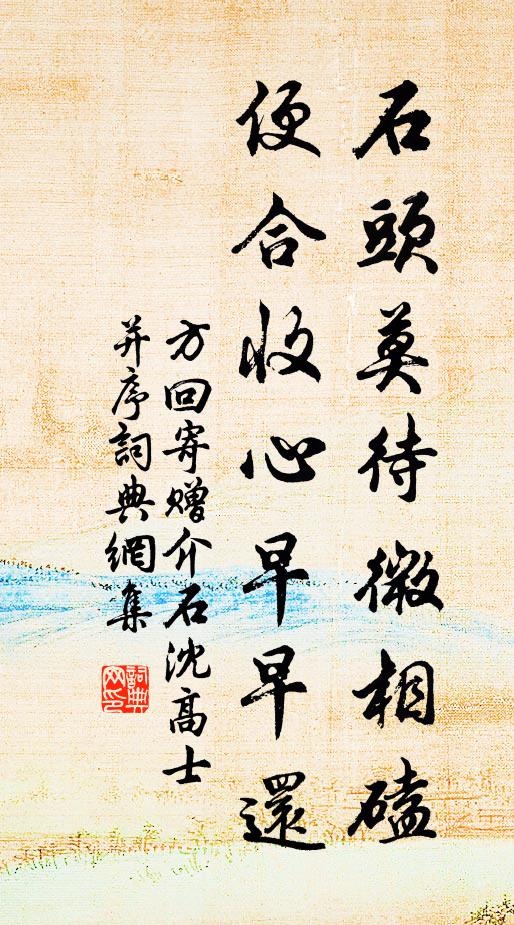 石頭莫待微相磕
便合收心早早還
方回寄贈介石沈高士
并序詞典網集
詞典网印